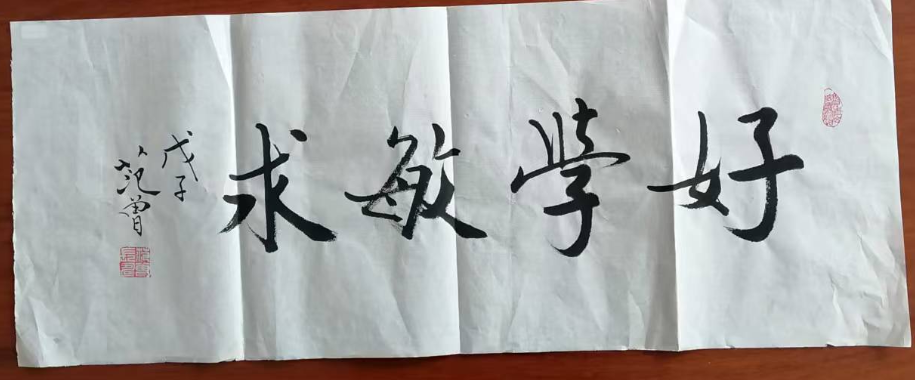 好學敏求
戊子
范曾